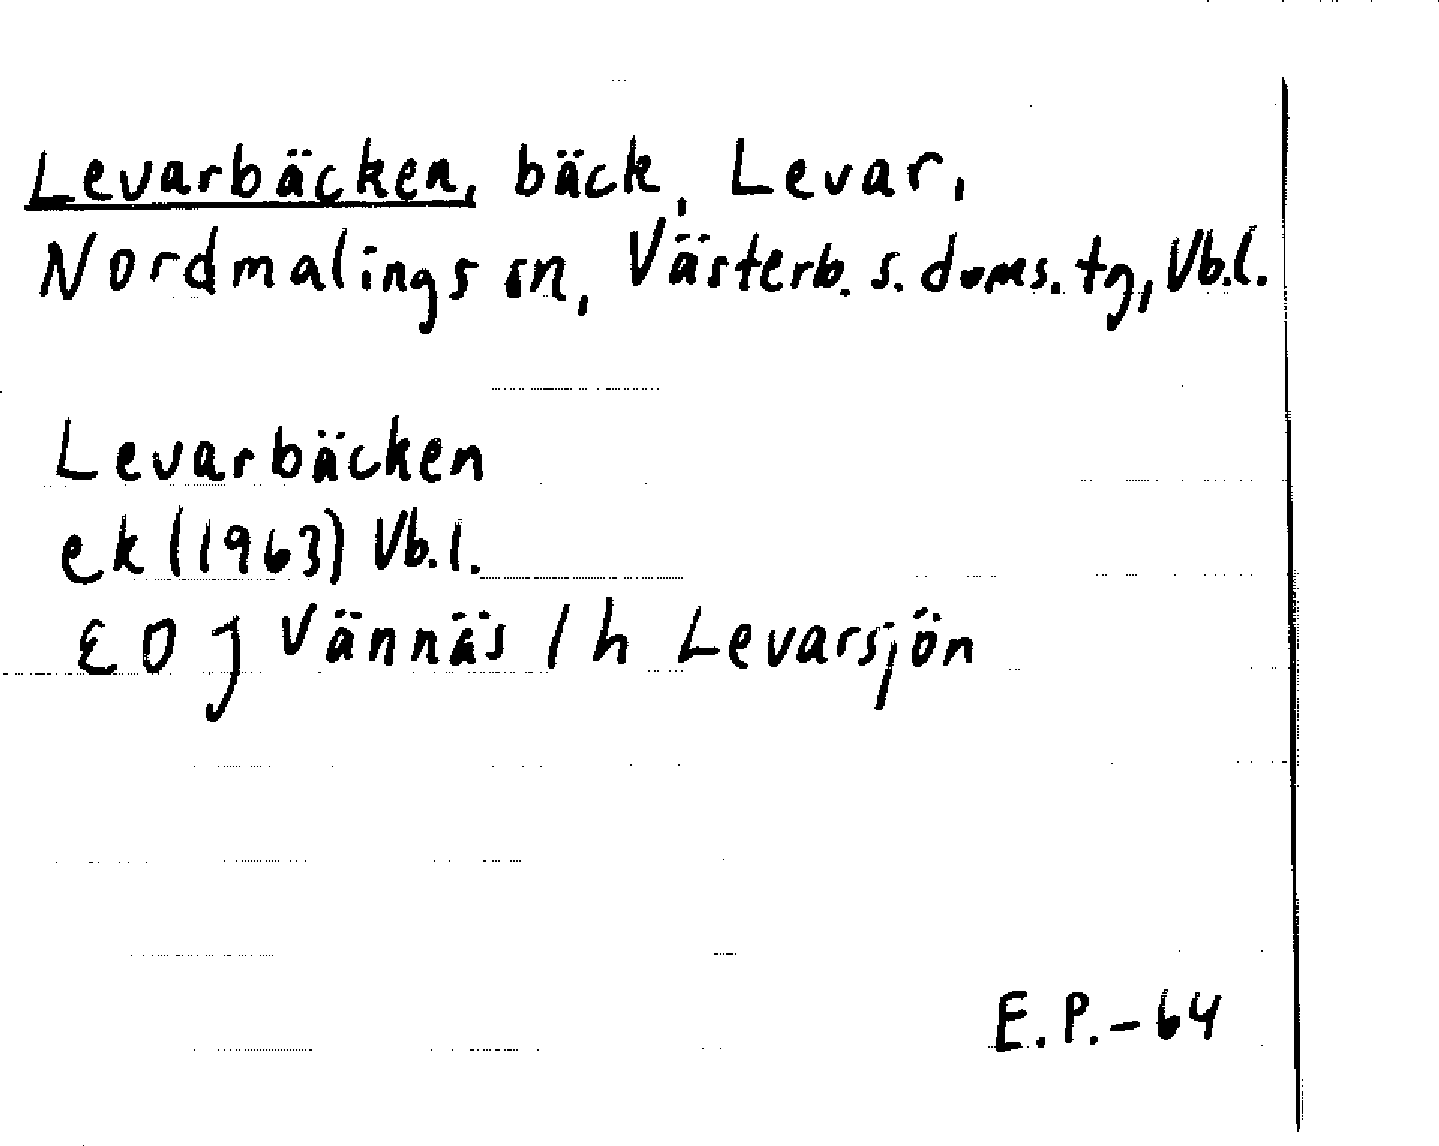 Levarbäcken, bäck, Levar,
Nordmalings sn, Västerb. s. doms. tg, Vb.l.
Levarbäcken
ek (1963) Vb.l.
20 J Vännäs 1 h Levarsjön
E.P.-64